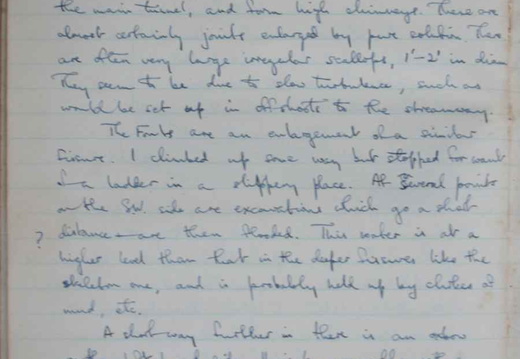 the main tunnel, and form high chimneys. These are
almost certainly joints enlarged by pure solution. There
are often very large irregular scallops, 1'-2' in diam
They seem to be due to slow turbulence, such as
would be set up in offshoots to the streamway.
The Fonts are an enlargement of a similar
fissure. I climbed up some way but stopped for want
of a ladder in a slippery place. At several points
on the SW. side are excavations which go a short
distance are then flooded. This water is at a
? higher level than that in the deeper fissures like the
skeleton one, and is probably held up by chokes of
mud, etc.
A short way further in there is an oxbow